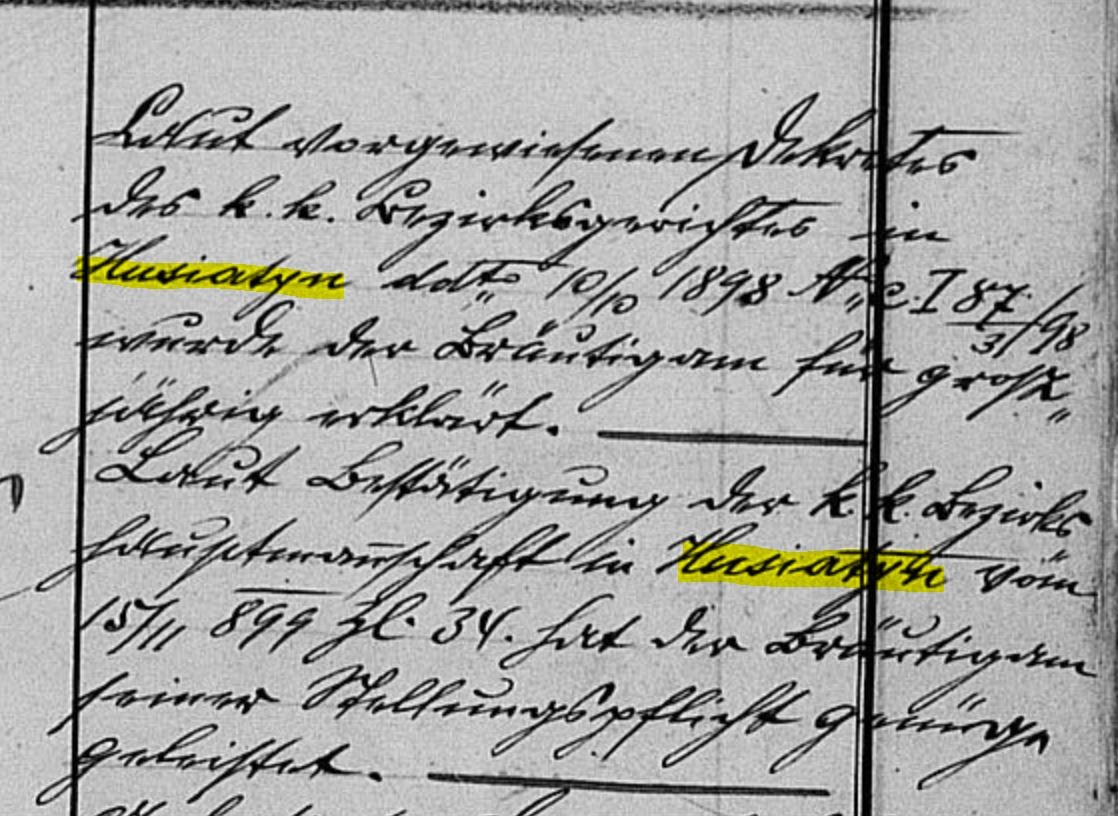 Laut vorgewiesenen Dekretes
des k. k. Bezirksgerichtes in
Husiatyn ddto 10/10 1898 Nc. I 87/3/98
wurde der Bräutigam für groß„
jährig erklärt.
Laut Bestätigung der k. k. Bezirks
hauptmannschaft in Husiatyn vom
15/11 899 Zl. 34. hat der Bräutigam
seiner Stellungspflicht Genüge
geleistet.